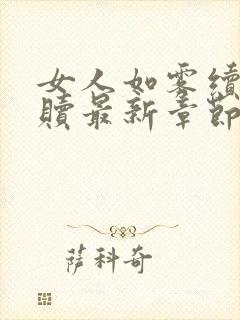 女人如雾续
赎最新章节
萨科奇